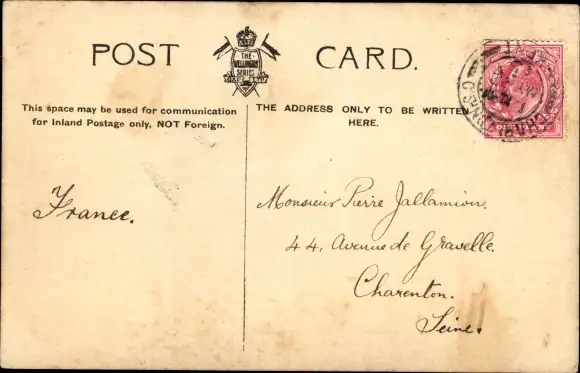 POST CARD.
THE
WELLINGTON
SERIES
This space may be used for communication
for Inland Postage only, NOT Foreign.
THE ADDRESS ONLY TO BE WRITTEN
HERE.
France.
Monsieur Pierre Jallamion.
44, Avenue de Gravelle.
Charenton.
Seine.